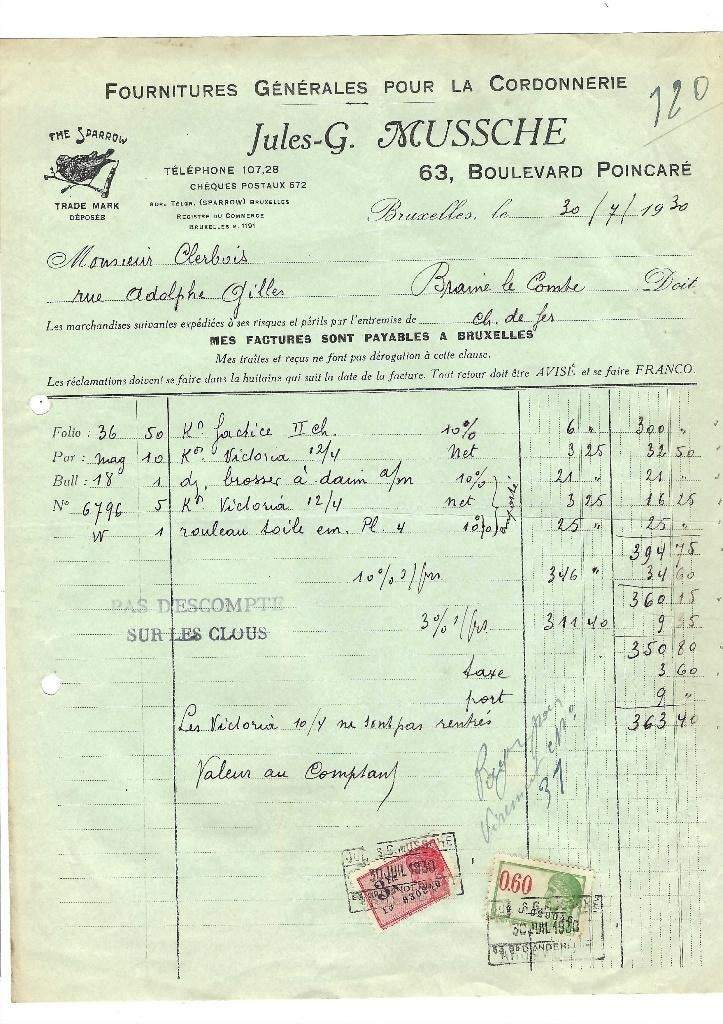 FOURNITURES GÉNÉRALES POUR LA CORDONNERIE
120
THE SPARROW
TRADE MARK
DÉPOSÉE
Jules-G. MUSSCHE
TÉLÉPHONE 107,28
CHÈQUES POSTAUX 572
ADR. TÉLGR. (SPARROW) BRUXELLES
REGISTRE DU COMMERCE
BRUXELLES N. 1191
63, BOULEVARD POINCARÉ
Bruxelles, le 30/7/1930
Monsieur Clerbois
rue Adolphe Gilles Braine le Comte Doit
Les marchandises suivantes expédiées à ses risques et périls par l'entremise de ch. de fer
MES FACTURES SONT PAYABLES A BRUXELLES
Mes traites et reçus ne font pas dérogation à cette clause.
Les réclamations doivent se faire dans la huitaine qui suit la date de la facture. Tout retour doit être AVISÉ et se faire FRANCO.
Folio : 36 50 Kos factice II ch. 10% 6 " 300 "
Par : mag 10 Kos Victoria 12/4 Net 3 25 32 50
Bull : 18 1 dz brosser à daim a/m 10% 21 " 21 "
No 6796 5 Kos Victoria 12/4 net 3 25 16 25
W 1 rouleau toile em. Pl. 4 10% 25 " 25 "
394 75
10% s/frs 346 " 34 60
360 15
3% s/frs 311 40 9 35
350 80
taxe 3 60
port 9 "
363 40
PAS D'ESCOMPTE
SUR LES CLOUS
Les Victoria 10/4 ne sont pas rentrés
Valeur au Comptant
Payé par
Virement
37
30 JUIL 1930
0.60
30 JUIL 1930